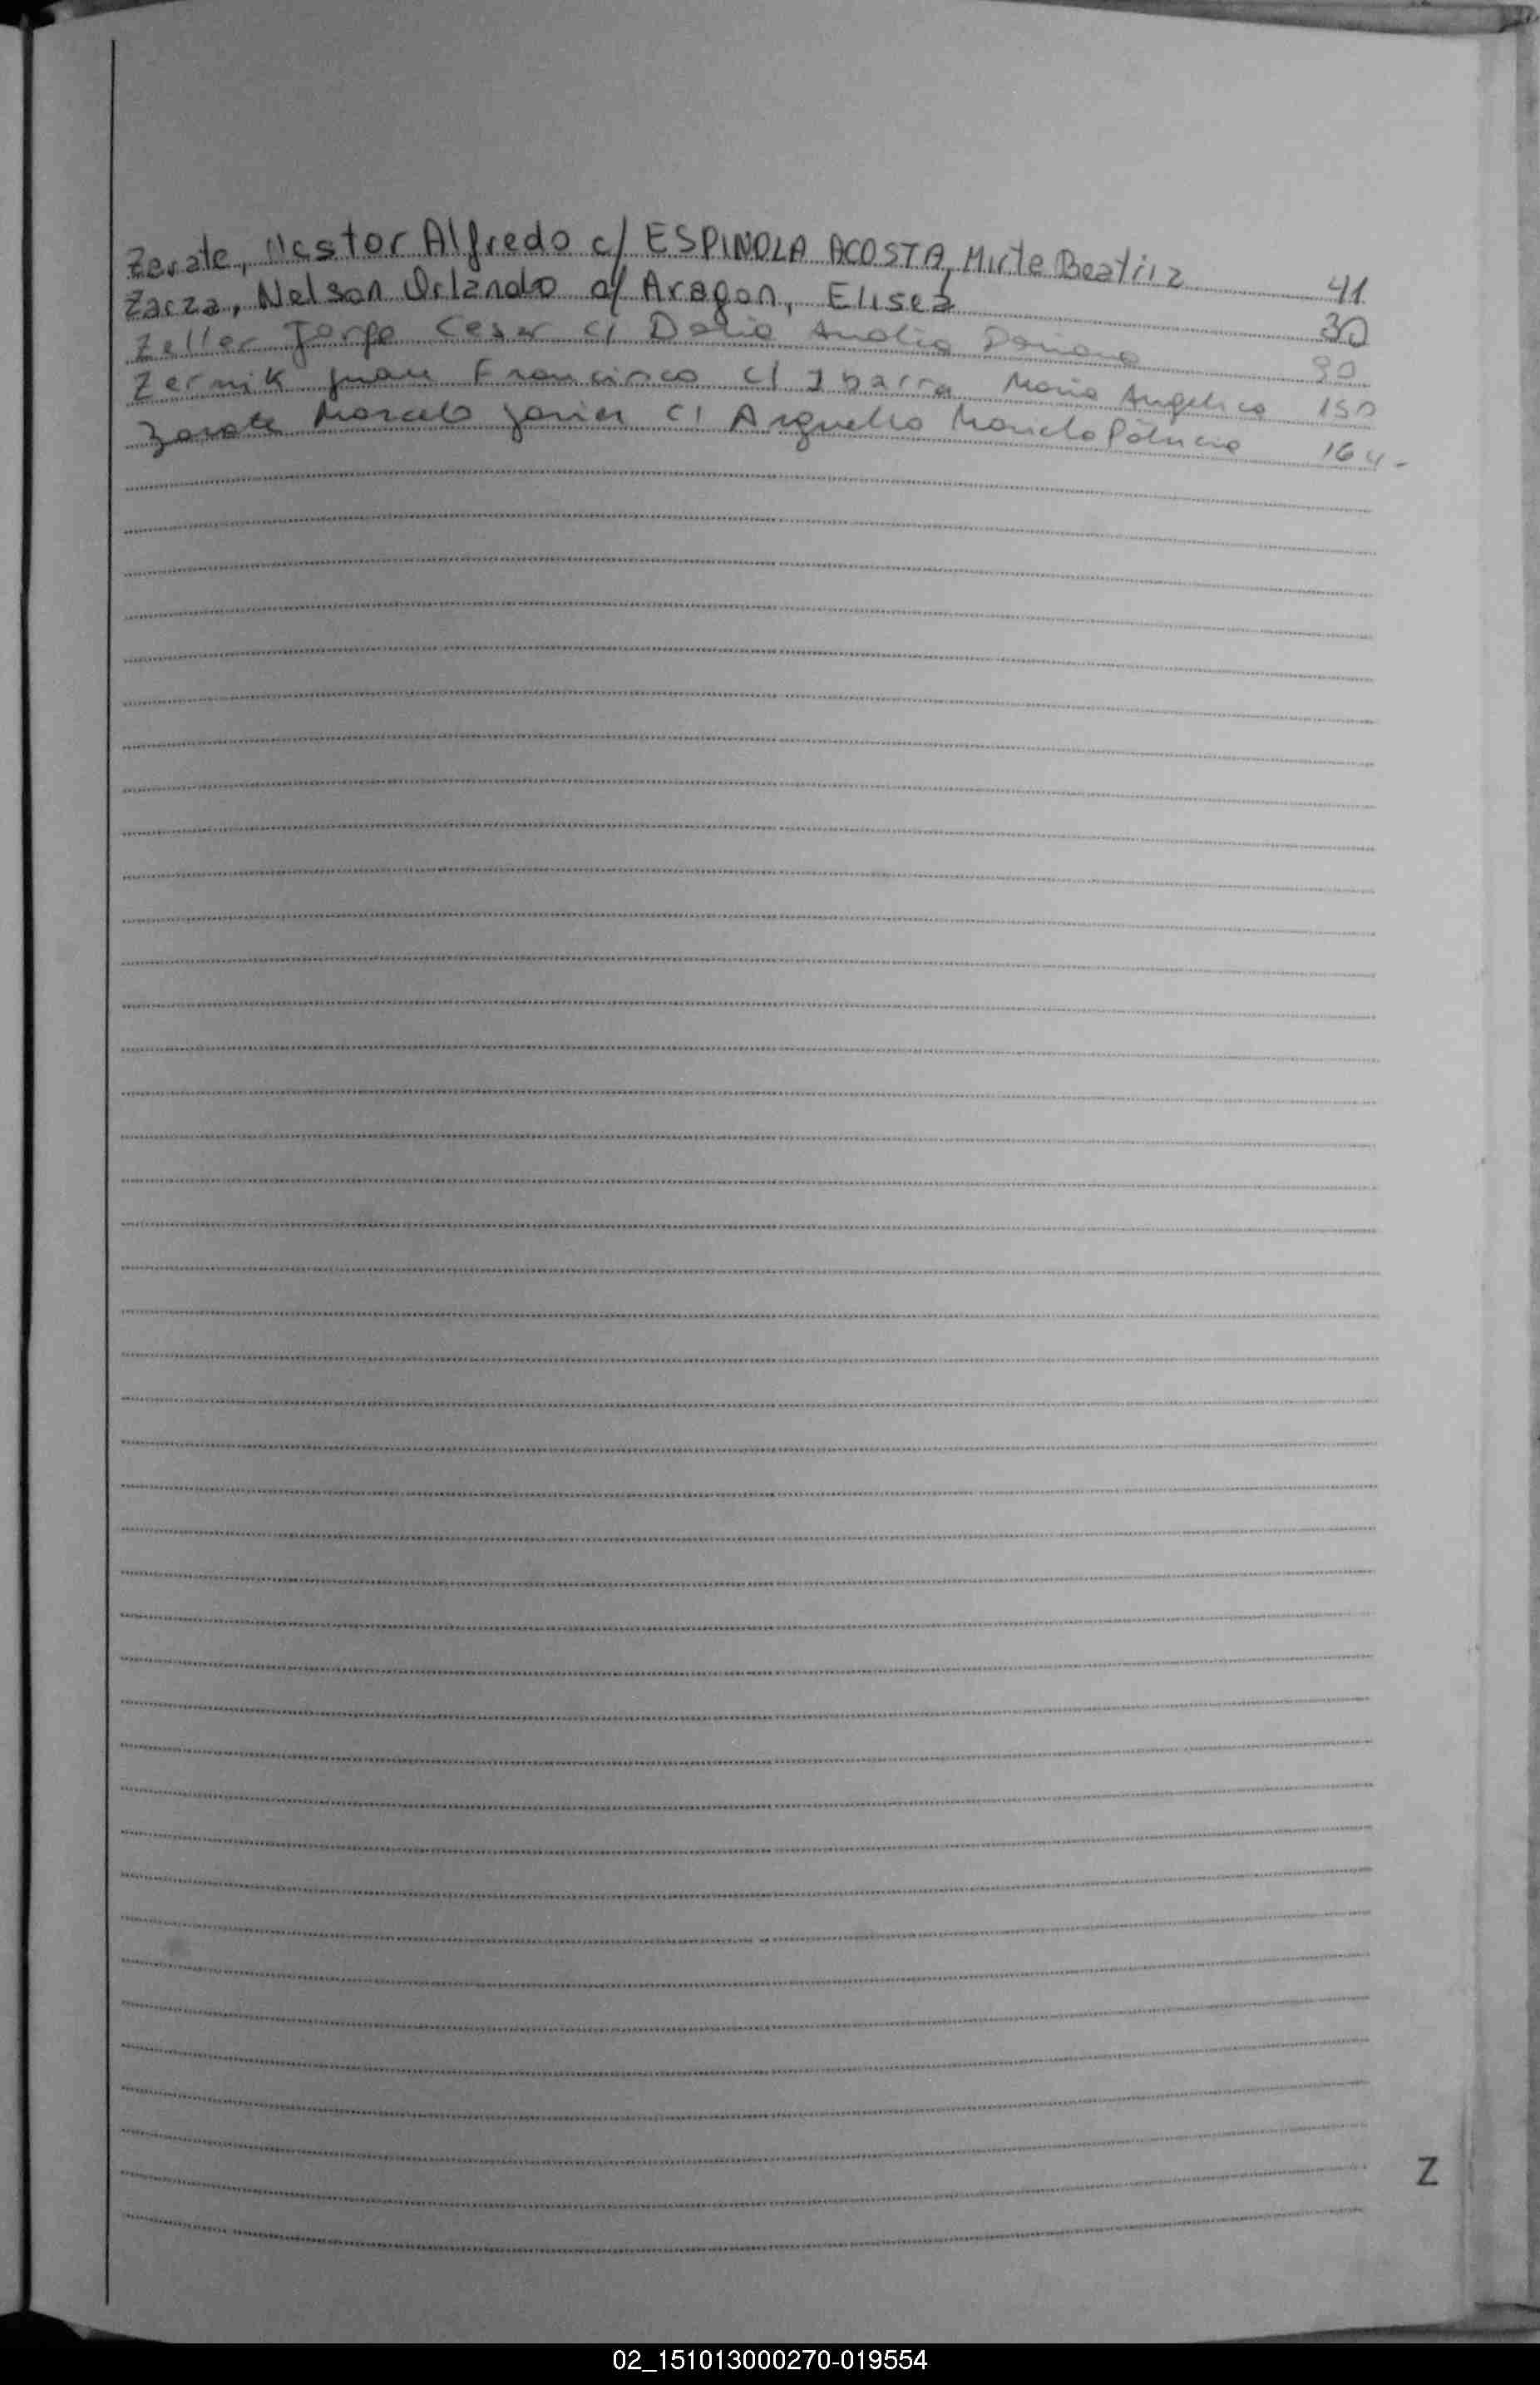 Zerate, Nestor Alfredo c/ ESPINOLA ACOSTA, Mirte Beatriz 41
Zarza, Nelson Orlando c/ Aragon, Elisea 30
Zeller Jorge Cesar c/ Analia 90
Zernik Juan Francisco c/ Ibarra Maria Angelica 150
Zarate Marcelo Javier c/ Arguello Patricia 164-
Z
02_151013000270-019554